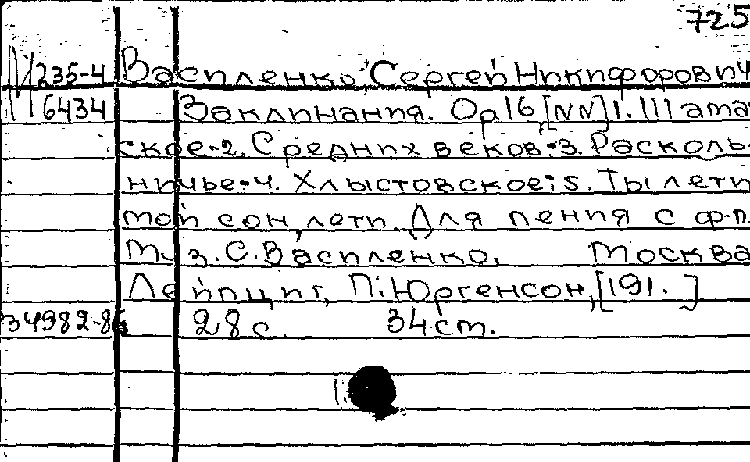 725
М 235-4 Василенко Сергей Никифорович
6434 Заклинания. Ор 16 [NN] 1. Шама
ское-2. Средних веков-3. Расколь-
ничье-4. Хлыстовское: 5. Ты лети
мой сон, лети. Для пения с ф-п.
М. з. С. Василенко. Москва
Лейпциг, П. Юргенсон, [191. ]
34982-86 28 с. 34 ст.